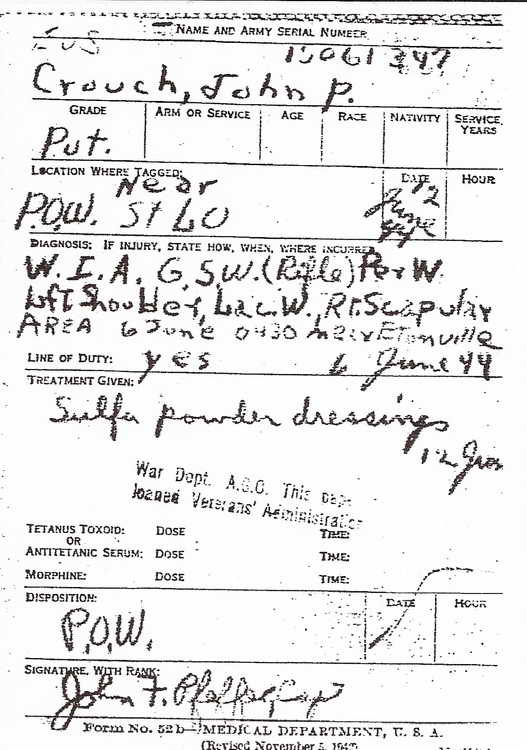 NAME AND ARMY SERIAL NUMBER
EUS 15061347
Crouch, John P.
GRADE ARM OR SERVICE AGE RACE NATIVITY SERVICE, YEARS
Put.
LOCATION WHERE TAGGED: DATE HOUR
Near 12
P.O.W. St LO June 44
DIAGNOSIS: IF INJURY, STATE HOW, WHEN, WHERE INCURRED
W.I.A. G.S.W. (Rifle) Per W.
Left Shoulder, Lac. W., Rt. Scapular
AREA 6 June 0430 near
LINE OF DUTY: yes 6 June 44
TREATMENT GIVEN:
Sulfa powder dressings
12 June
War Dept. A.G.O. This
loaned Veterans' Administration
TETANUS TOXOID: DOSE TIME:
OR
ANTITETANIC SERUM: DOSE TIME:
MORPHINE: DOSE TIME:
DISPOSITION: DATE HOUR
P.O.W.
SIGNATURE, WITH RANK:
John F. Capt
FORM NO. 52b—MEDICAL DEPARTMENT, U. S. A.
(Revised November 5,